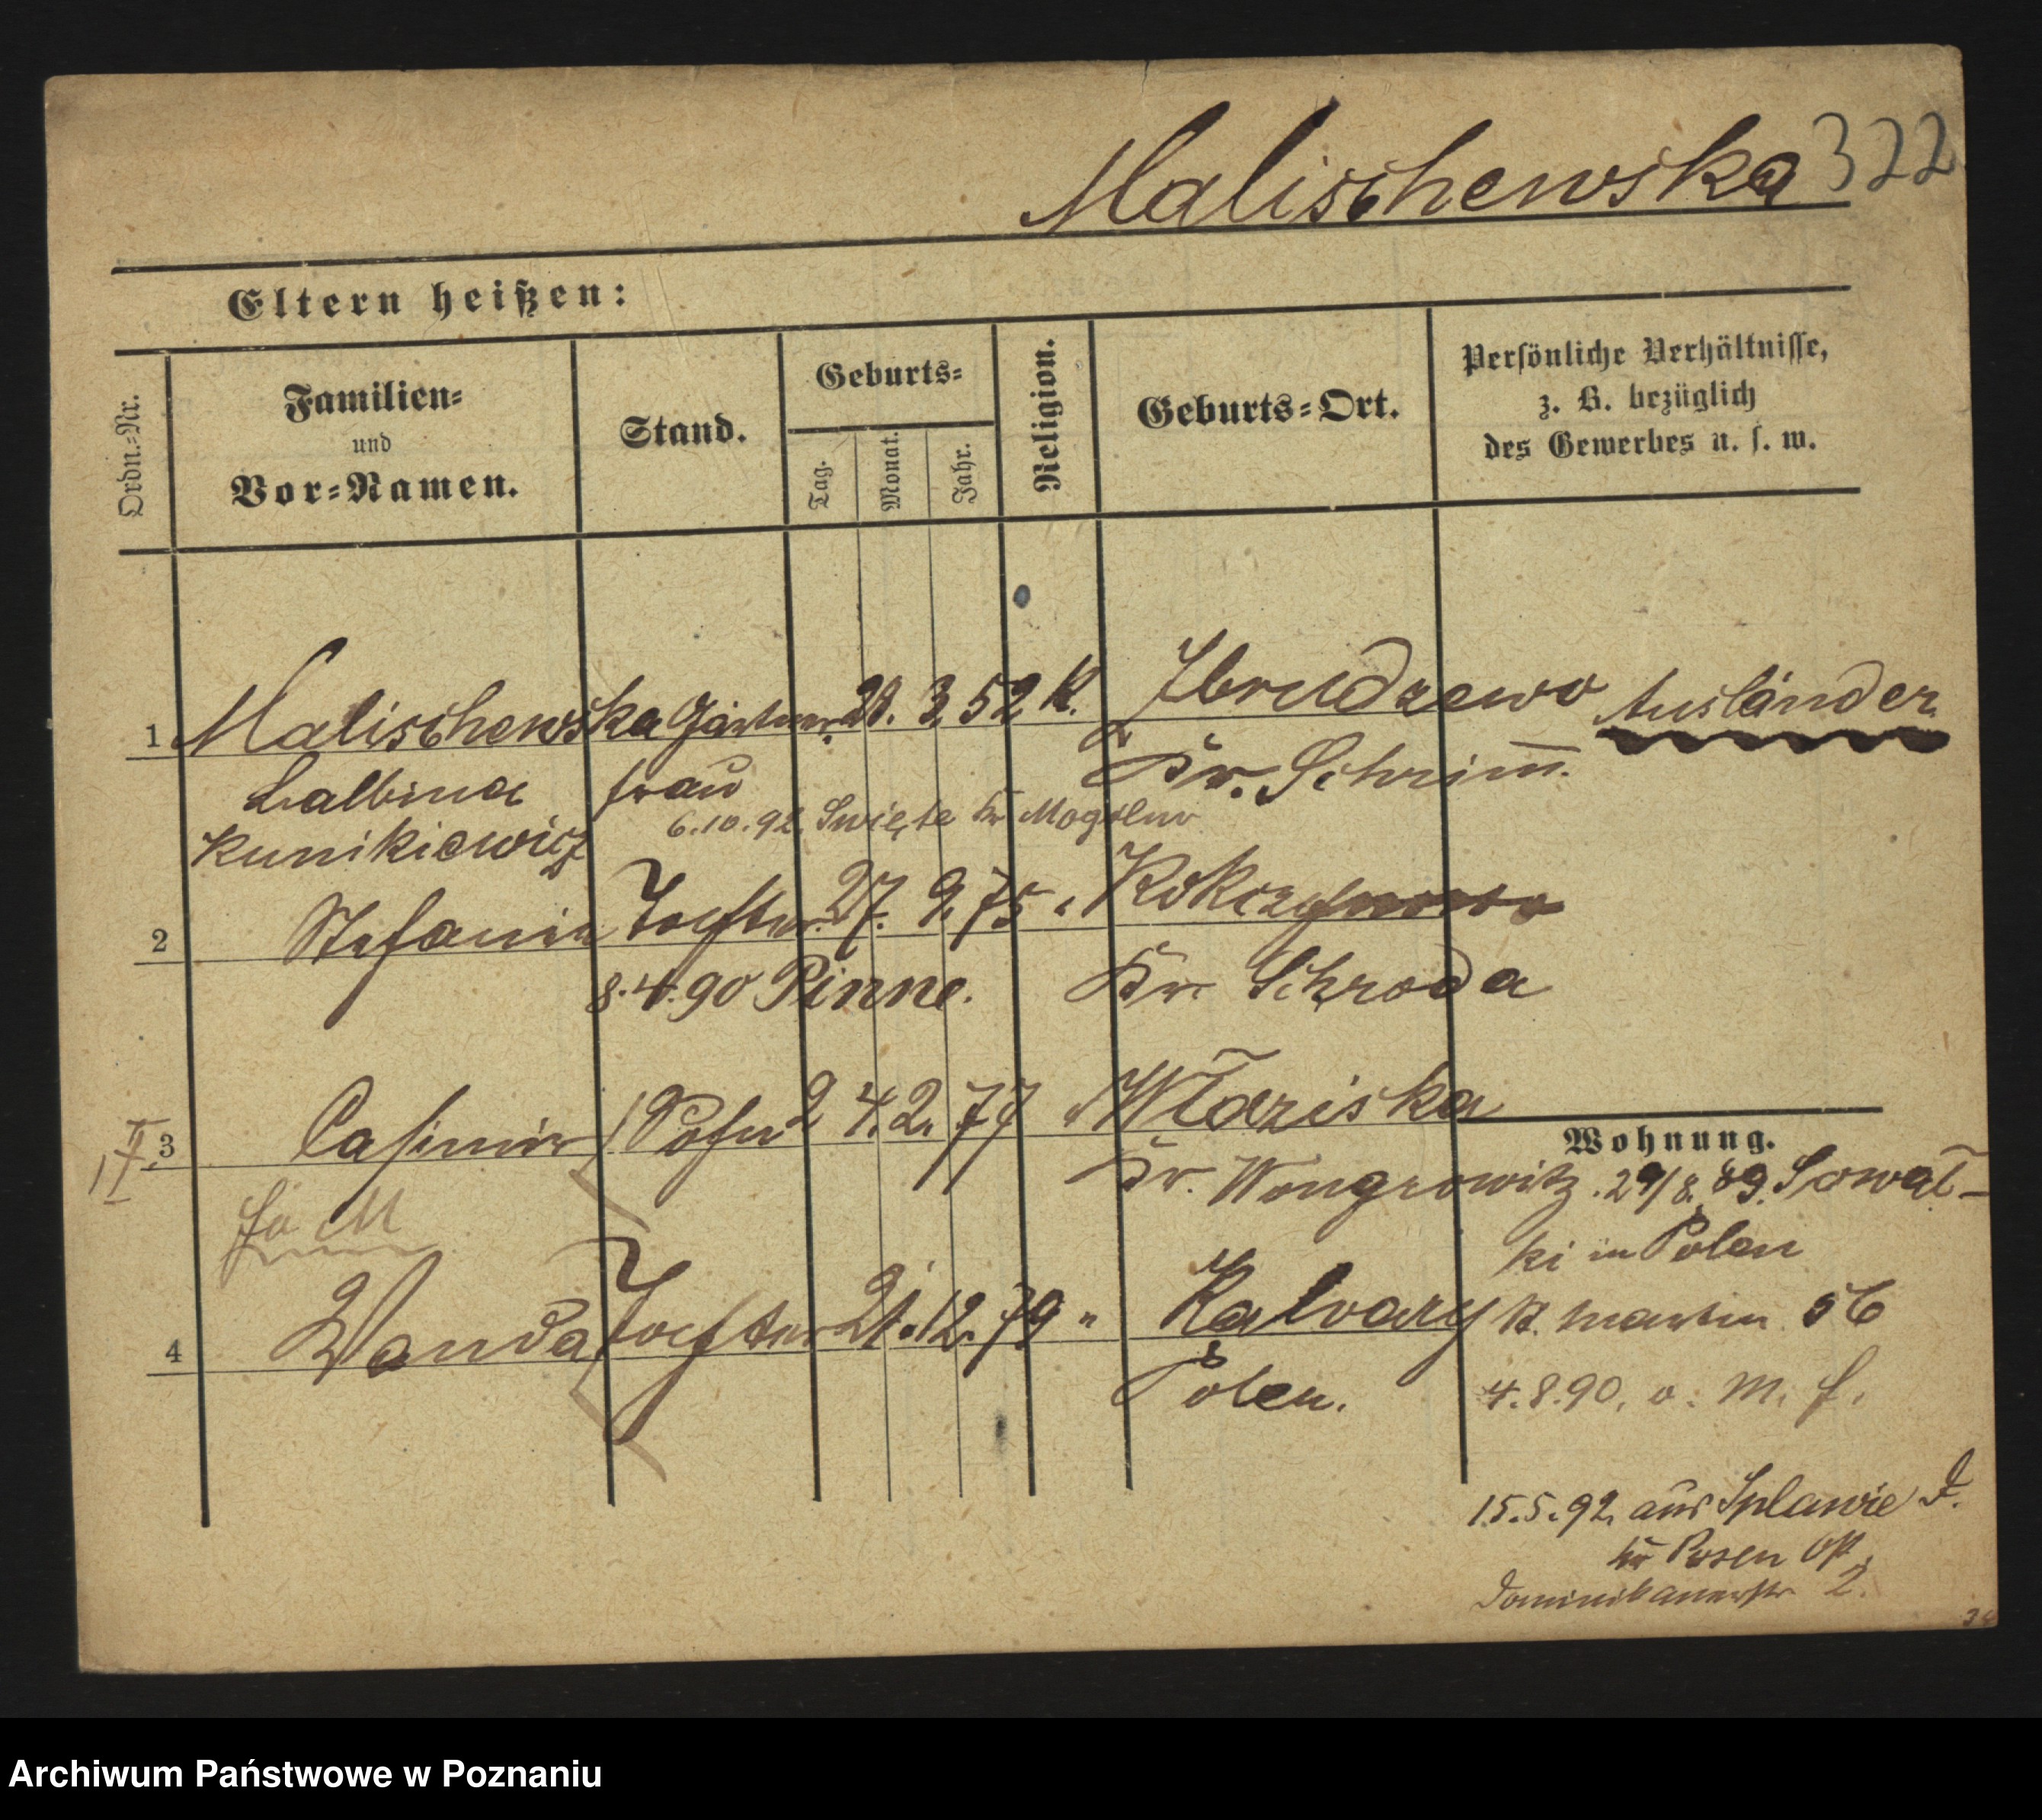 Malischewska 322
Eltern heißen:
Ordn.-Nr.
Familien-
und
Vor-Namen.
Stand.
Geburts-
Tag.
Monat.
Jahr.
Religion.
Geburts-Ort.
Persönliche Verhältnisse,
z. B. bezüglich
des Gewerbes u. s. w.
1 Malischewska Gärtner 21. 3. 52 K. Zbrudzewo Ausländer
Balbina frau Kr. Schrimm
6.10.92. Swięte Kr Mogilno
Kunikiewicz
2 Stefania Tochter 27. 9. 75 " Kokczynowo
8.4.90 Pinne. Kr. Schroda
3 Casimir Sohn 24. 2. 77 "
Wohnung.
Kr. Wongrowitz. 29/8. 89. Sowal-
ki in Polen
4 Wanda Tochter 21. 12. 79 " Kalvary St. Martin 56
Polen. 4.8.90. o. M. f.
15.5.92. aus Splawie
Kr Posen Ost
Dominikanerstr 2.
Archiwum Państwowe w Poznaniu